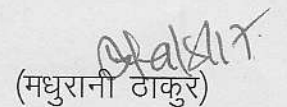 (मधुरानी ठाकुर)